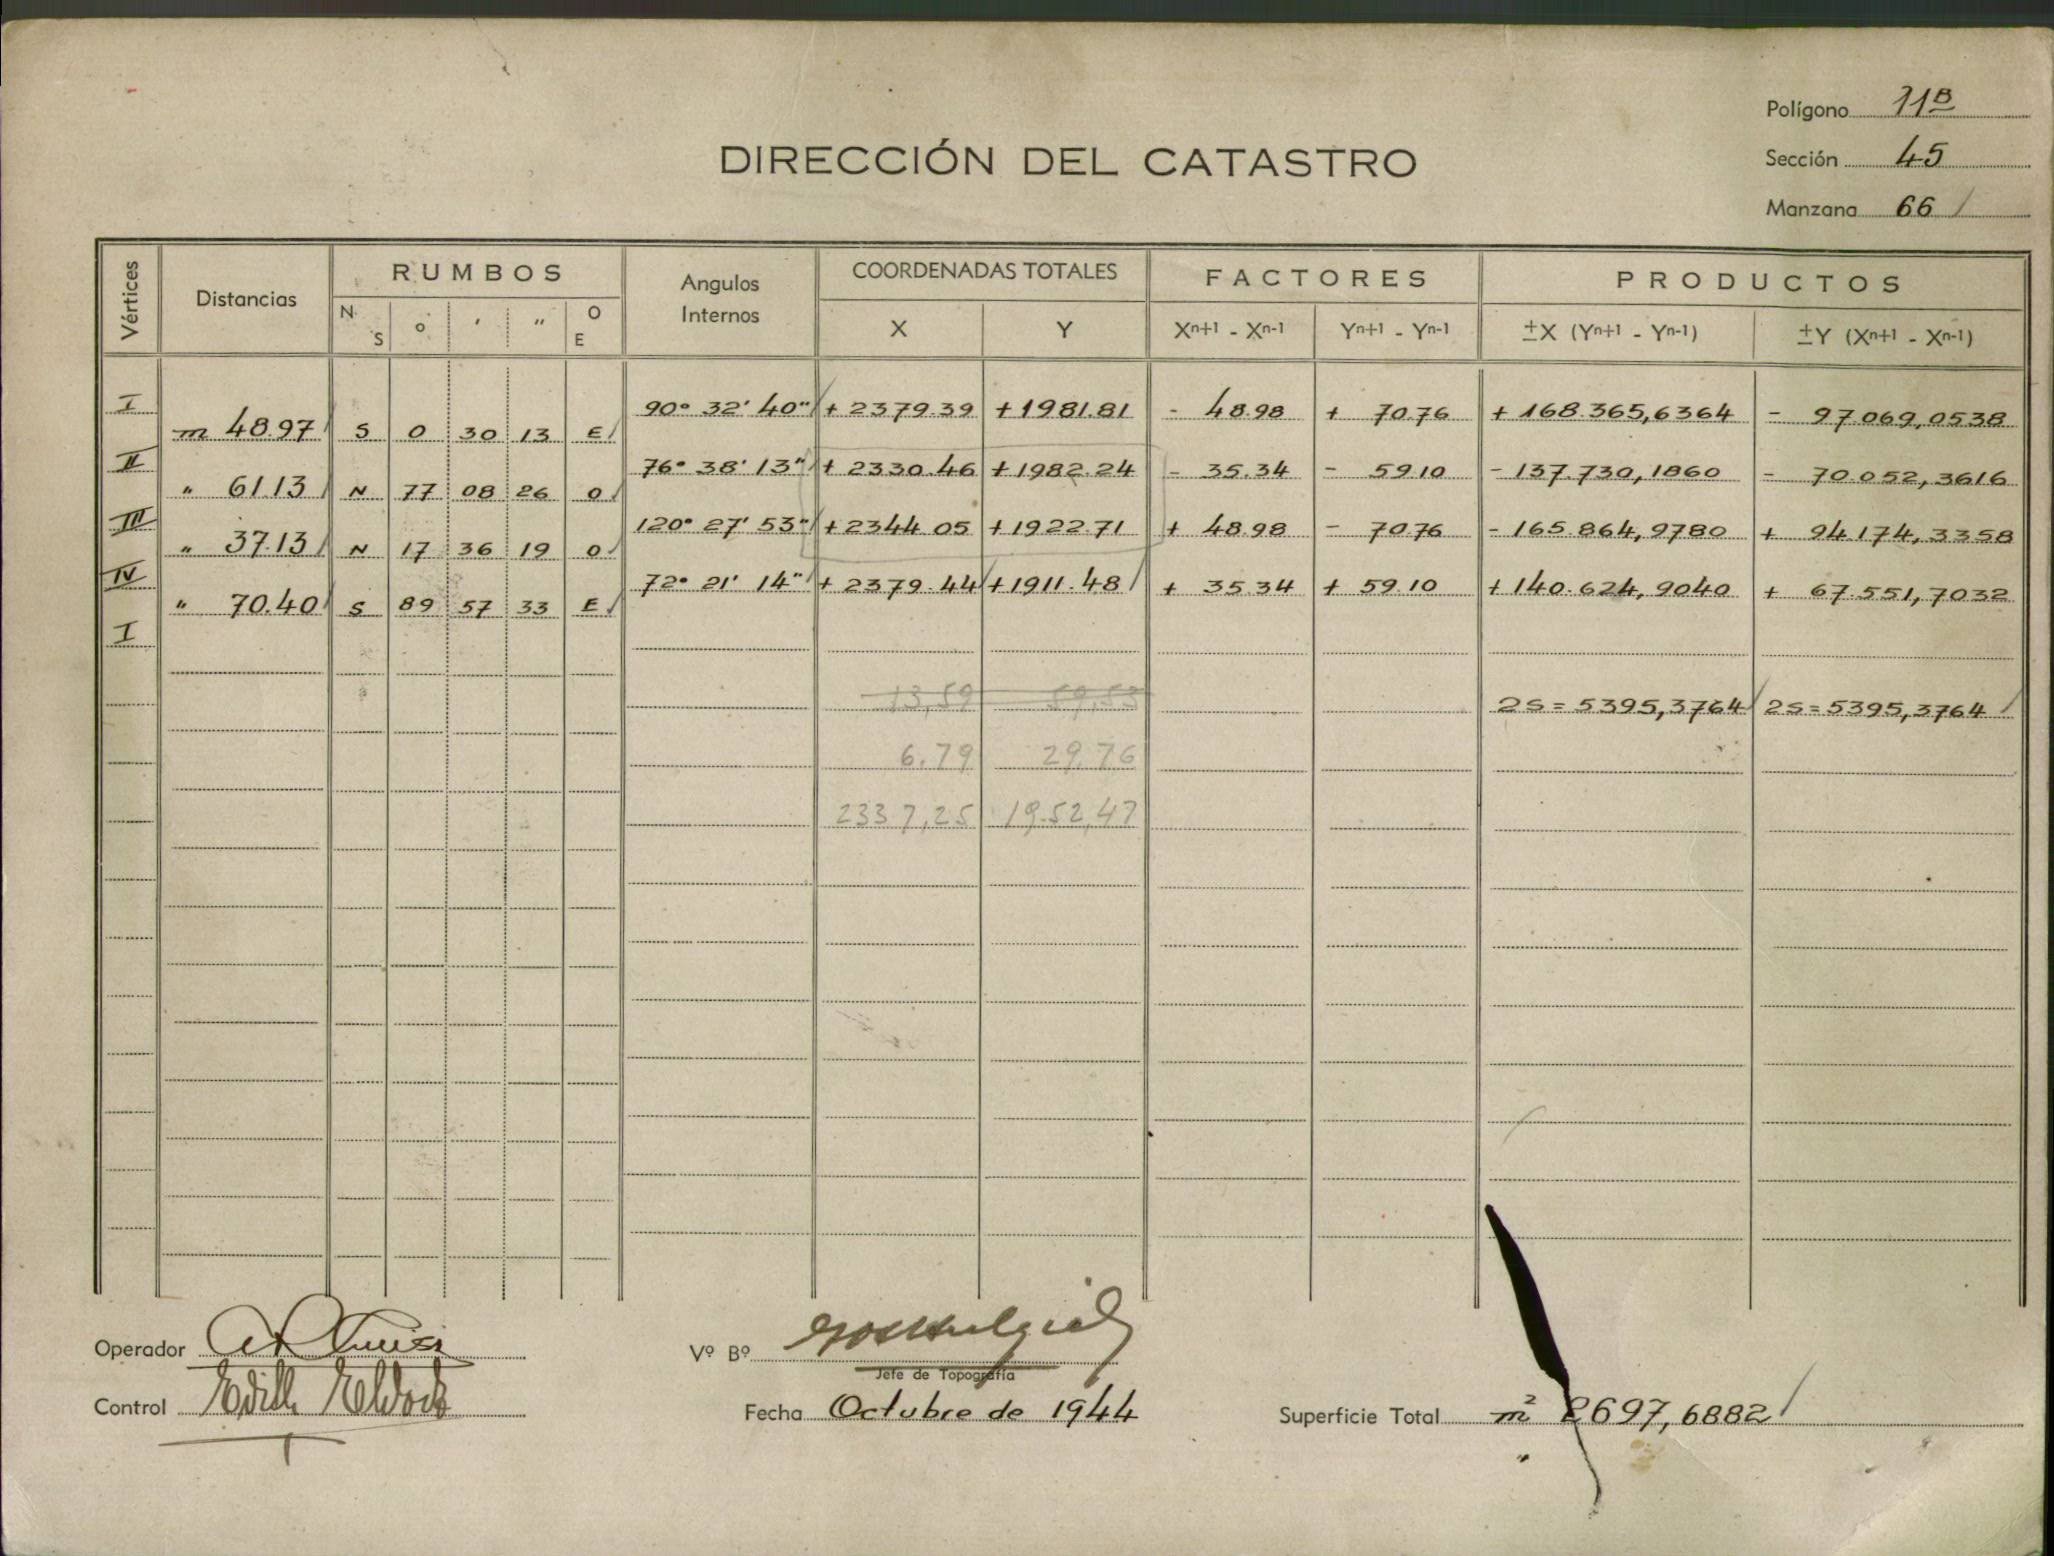 Polígono 11B
DIRECCIÓN DEL CATASTRO
Sección 45
Manzana 66
Vértices Distancias RUMBOS Angulos Internos COORDENADAS TOTALES FACTORES PRODUCTOS
N S o ′ ″ O E X Y Xn+1 - Xn-1 Yn+1 - Yn-1 ±X (Yn+1 - Yn-1) ±Y (Xn+1 - Xn-1)
I 90° 32' 40" + 2379.39 + 1981.81 - 48.98 + 70.76 + 168.365,6364 - 97.069,0538
m 48.97 S 0 30 13 E
II 76° 38' 13" + 2330.46 + 1982.24 - 35.34 - 59.10 - 137.730,1860 - 70.052,3616
" 61.13 N 77 08 26 O
III 120° 27' 53" + 2344.05 + 1922.71 + 48.98 - 70.76 - 165.864,9780 + 94.174,3358
" 37.13 N 17 36 19 O
IV 72° 21' 14" + 2379.44 + 1911.48 + 35.34 + 59.10 + 140.624,9040 + 67.551,7032
" 70.40 S 89 57 33 E
I
13,59 59,53 2S = 5395,3764 2S = 5395,3764
6.79 29,76
2337,25 1952,47
Operador
Vº Bº
Jefe de Topografía
Control
Fecha Octubre de 1944
Superficie Total m² 2697,6882